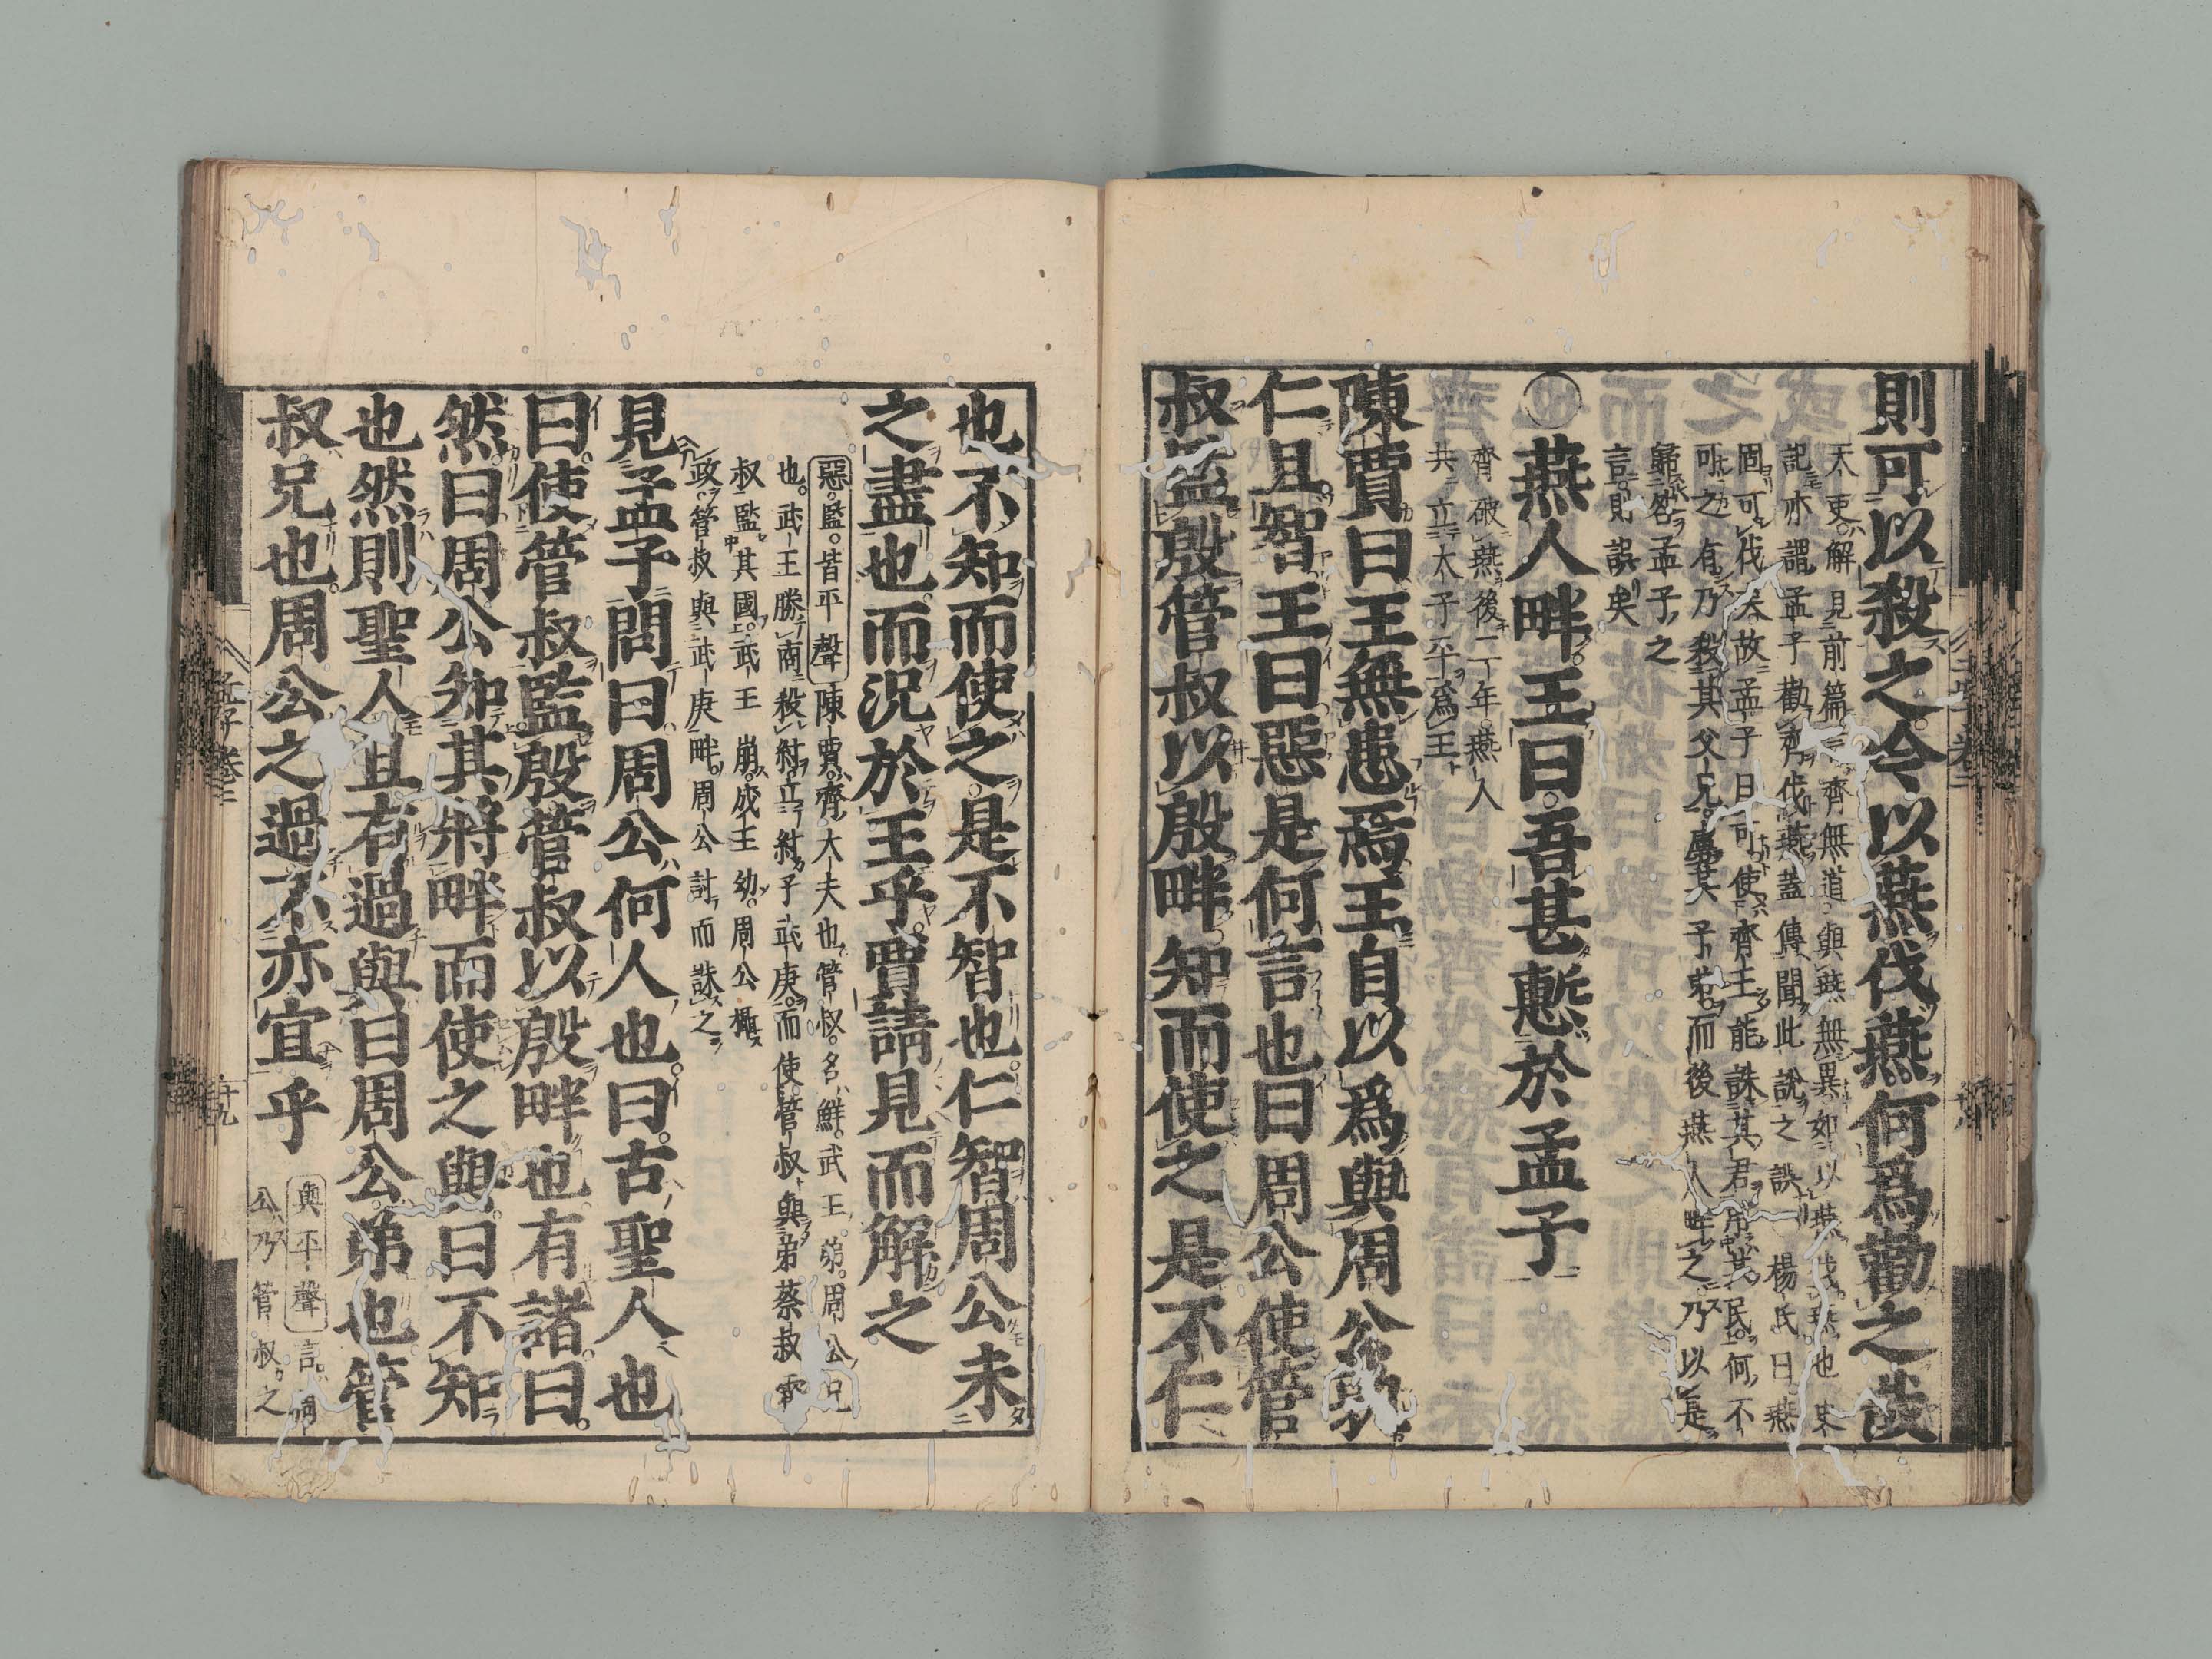 則可以殺之今以燕伐燕何爲勸之哉
天吏解見前篇言齊無道與燕無異如以燕伐燕也史
記亦謂孟子勸齊伐燕蓋傳聞此說之誤 楊氏曰燕
固可伐矣故孟子曰可使齊王能誅其君弔其民何不
可之有乃殺其父兄虜其子弟而後燕人畔之乃以是
歸咎孟子之
言則誤矣
○燕人畔王曰吾甚慙於孟子
齊破燕後二年燕人
共立太子平爲王
陳賈曰王無患焉王自以爲與周公孰
仁且智王曰惡是何言也曰周公使管
叔監殷管叔以殷畔知而使之是不仁
也不知而使之是不智也仁智周公未
之盡也而況於王乎賈請見而解之
惡監皆平聲陳賈齊大夫也管叔名鮮武王弟周公兄
也武王勝商殺紂立紂子武庚而使管叔與弟蔡叔霍
叔監其國武王崩成王幼周公攝
政管叔與武庚畔周公討而誅之
見孟子問曰周公何人也曰古聖人也
曰使管叔監殷管叔以殷畔也有諸曰
然曰周公知其將畔而使之與曰不知
也然則聖人且有過與曰周公弟也管
叔兄也周公之過不亦宜乎
與平聲言周
公乃管叔之
孟子卷二
十九